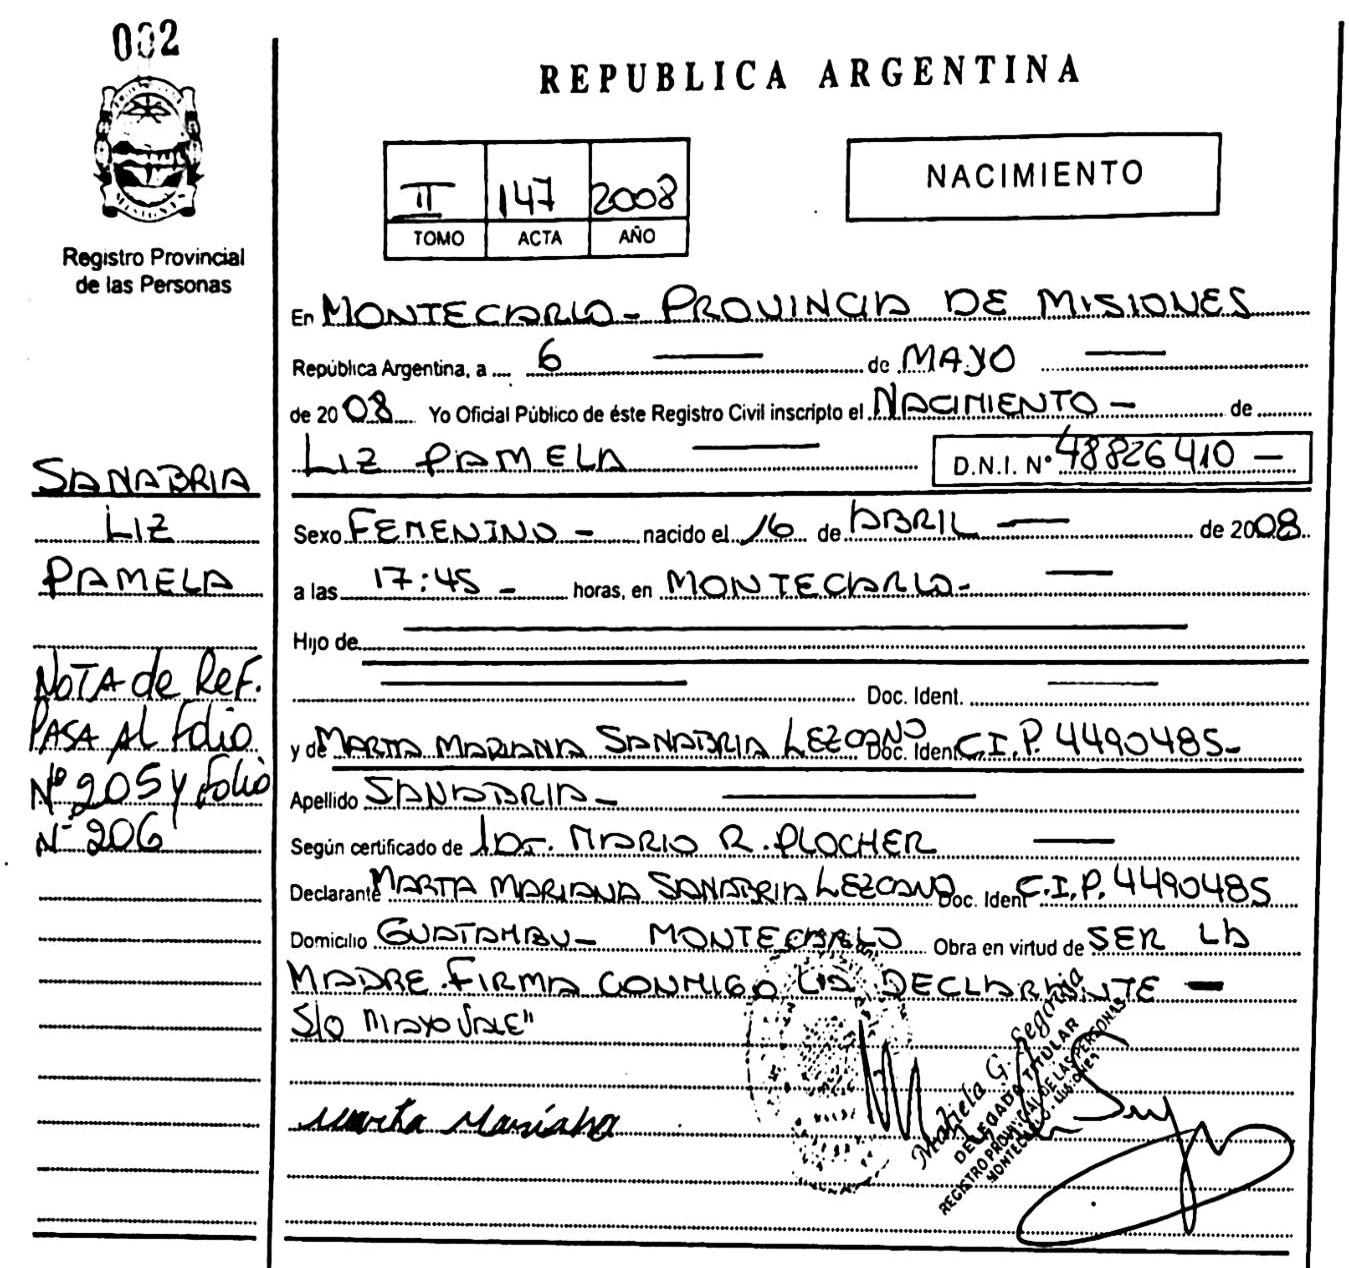 002
MISIONES
Registro Provincial
de las Personas
REPUBLICA ARGENTINA
II 147 2008
TOMO ACTA AÑO
NACIMIENTO
En MONTECARLO - PROVINCIA DE MISIONES
República Argentina, a 6 de MAYO
de 2008 Yo Oficial Público de éste Registro Civil inscripto el NACIMIENTO - de
LIZ PAMELA D.N.I. Nº 48826410 -
Sexo FEMENINO - nacido el 16 de ABRIL de 2008
a las 17:45 - horas, en MONTECARLO -
Hijo de
Doc. Ident.
y de MARTA MARIANA SANABRIA LEZCANO Doc. Ident C.I.P. 4490485-
Apellido SANABRIA -
Según certificado de Dr. MARIO R. PLOCHER
Declarante MARTA MARIANA SANABRIA LEZCANO Doc. Ident C.I.P. 4490485
Domicilio GUATAMBU - MONTECARLO Obra en virtud de SER LA
MADRE. FIRMA CONMIGO LA DECLARANTE -
S/O MAYO VALE"
Marta Mariana
SANABRIA
LIZ
PAMELA
NOTA de REF.
PASA AL folio
Nº 205 y folio
Nº 206
G. Segovia
DELEGADA TITULAR
REGISTRO PROVINCIAL DE LAS PERSONAS
MONTECARLO